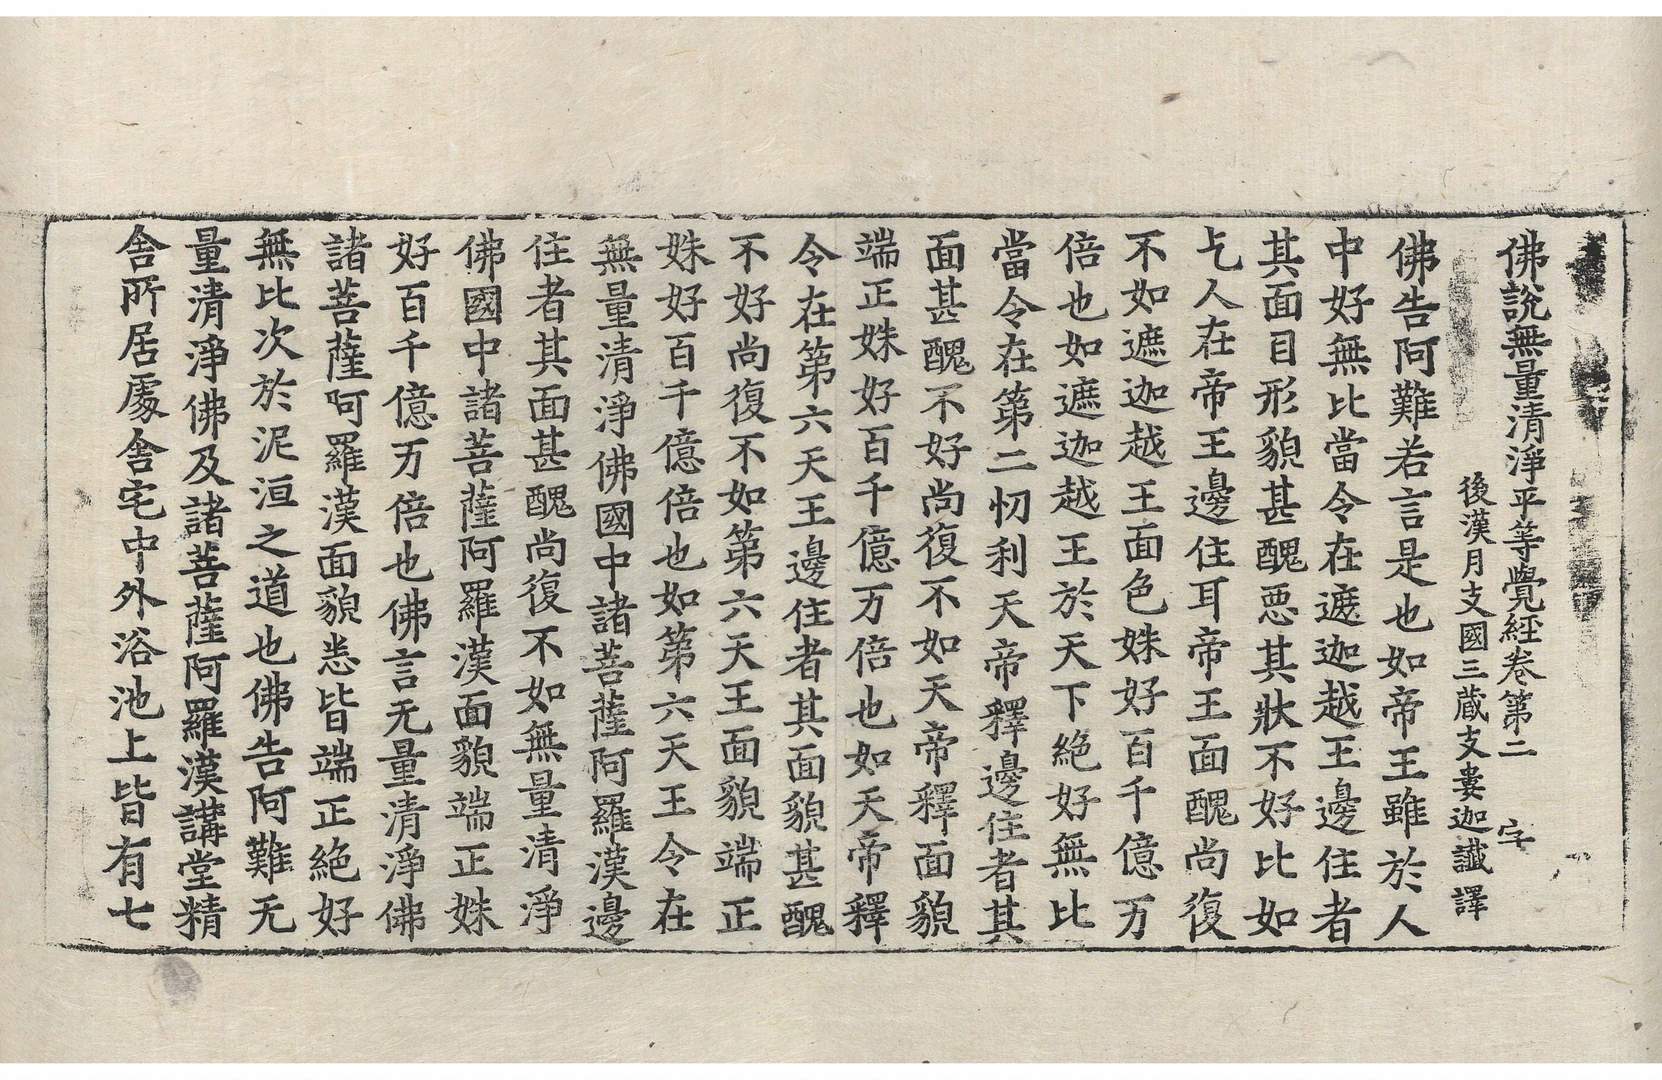 佛說無量清淨平等覺經卷第二　字
後漢月支國三藏支婁迦讖譯
佛告阿難若言是也如帝王雖於人
中好無比當令在遮迦越王邊住者
其面目形貌甚醜惡其狀不好比如
乞人在帝王邊住耳帝王面醜尚復
不如遮迦越王面色姝好百千億万
倍也如遮迦越王於天下絶好無比
當令在第二忉利天帝釋邊住者其
面甚醜不好尚復不如天帝釋面貌
端正姝好百千億万倍也如天帝釋
令在第六天王邊住者其面貌甚醜
不好尚復不如第六天王面貌端正
姝好百千億倍也如第六天王令在
無量清淨佛國中諸菩薩阿羅漢邊
住者其面甚醜尚復不如無量清淨
佛國中諸菩薩阿羅漢面貌端正姝
好百千億万倍也佛言无量清淨佛
諸菩薩阿羅漢面貌悉皆端正絶好
無比次於泥洹之道也佛告阿難无
量清淨佛及諸菩薩阿羅漢講堂精
舍所居處舍宅中外浴池上皆有七